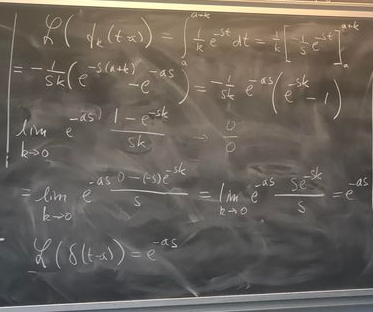 ℒ(f_k(t-a)) = ∫_a^{a+k} 1/k e^{-st} dt = 1/k [-1/s e^{-st}]_a^{a+k}
= -1/sk (e^{-s(a+k)} - e^{-as}) = -1/sk e^{-as} (e^{-sk} - 1)
lim_{k→0} e^{-as} (1 - e^{-sk})/sk → 0/0
= lim_{k→0} e^{-as} (0 - (-s)e^{-sk})/s = lim_{k→0} e^{-as} (se^{-sk})/s = e^{-as}
ℒ(δ(t-a)) = e^{-as}